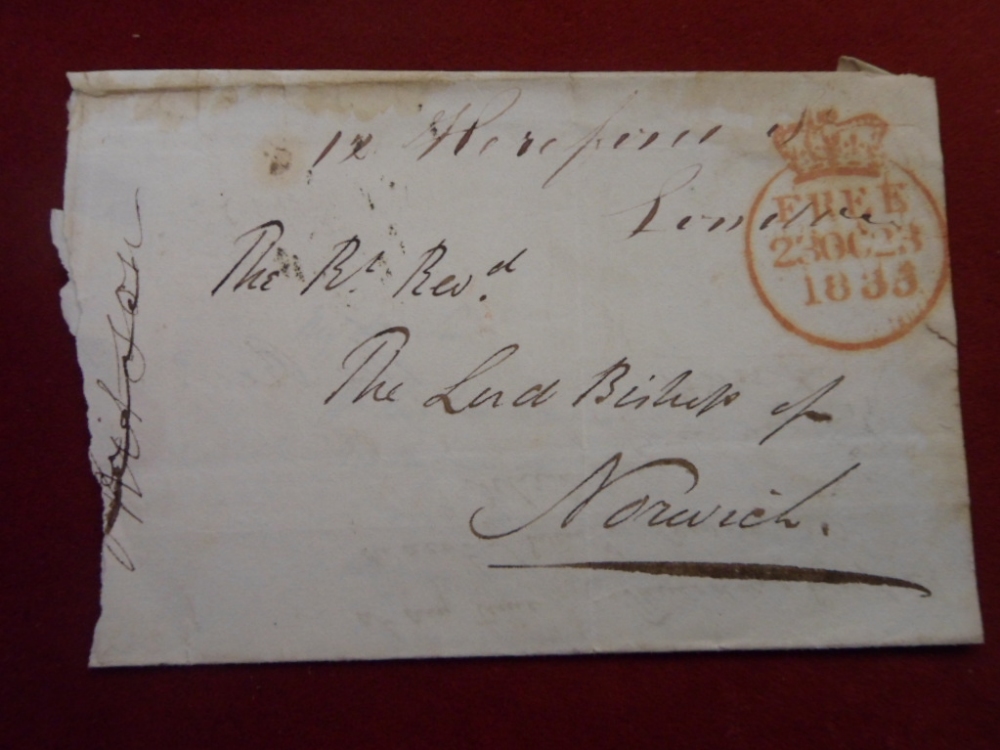 12 Hereford St
London
FREE
23OC23
1833
The Rt. Revd.
The Lord Bishop of
Norwich.